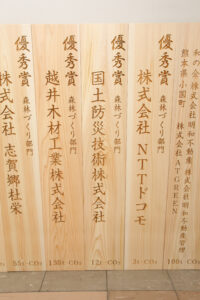 和の会 株式会社明和不動産 株式会社明和不動産管理
熊本県小国町 株式会社ATGREEN
100t-CO2
優秀賞 森林づくり部門
株式会社 NTTドコモ
3t-CO2
優秀賞 森林づくり部門
国土防災技術株式会社
12t-CO2
優秀賞 森林づくり部門
越井木材工業株式会社
155t-CO2
優秀賞 森林づくり部門
株式会社 志賀郷杜栄
55t-CO2